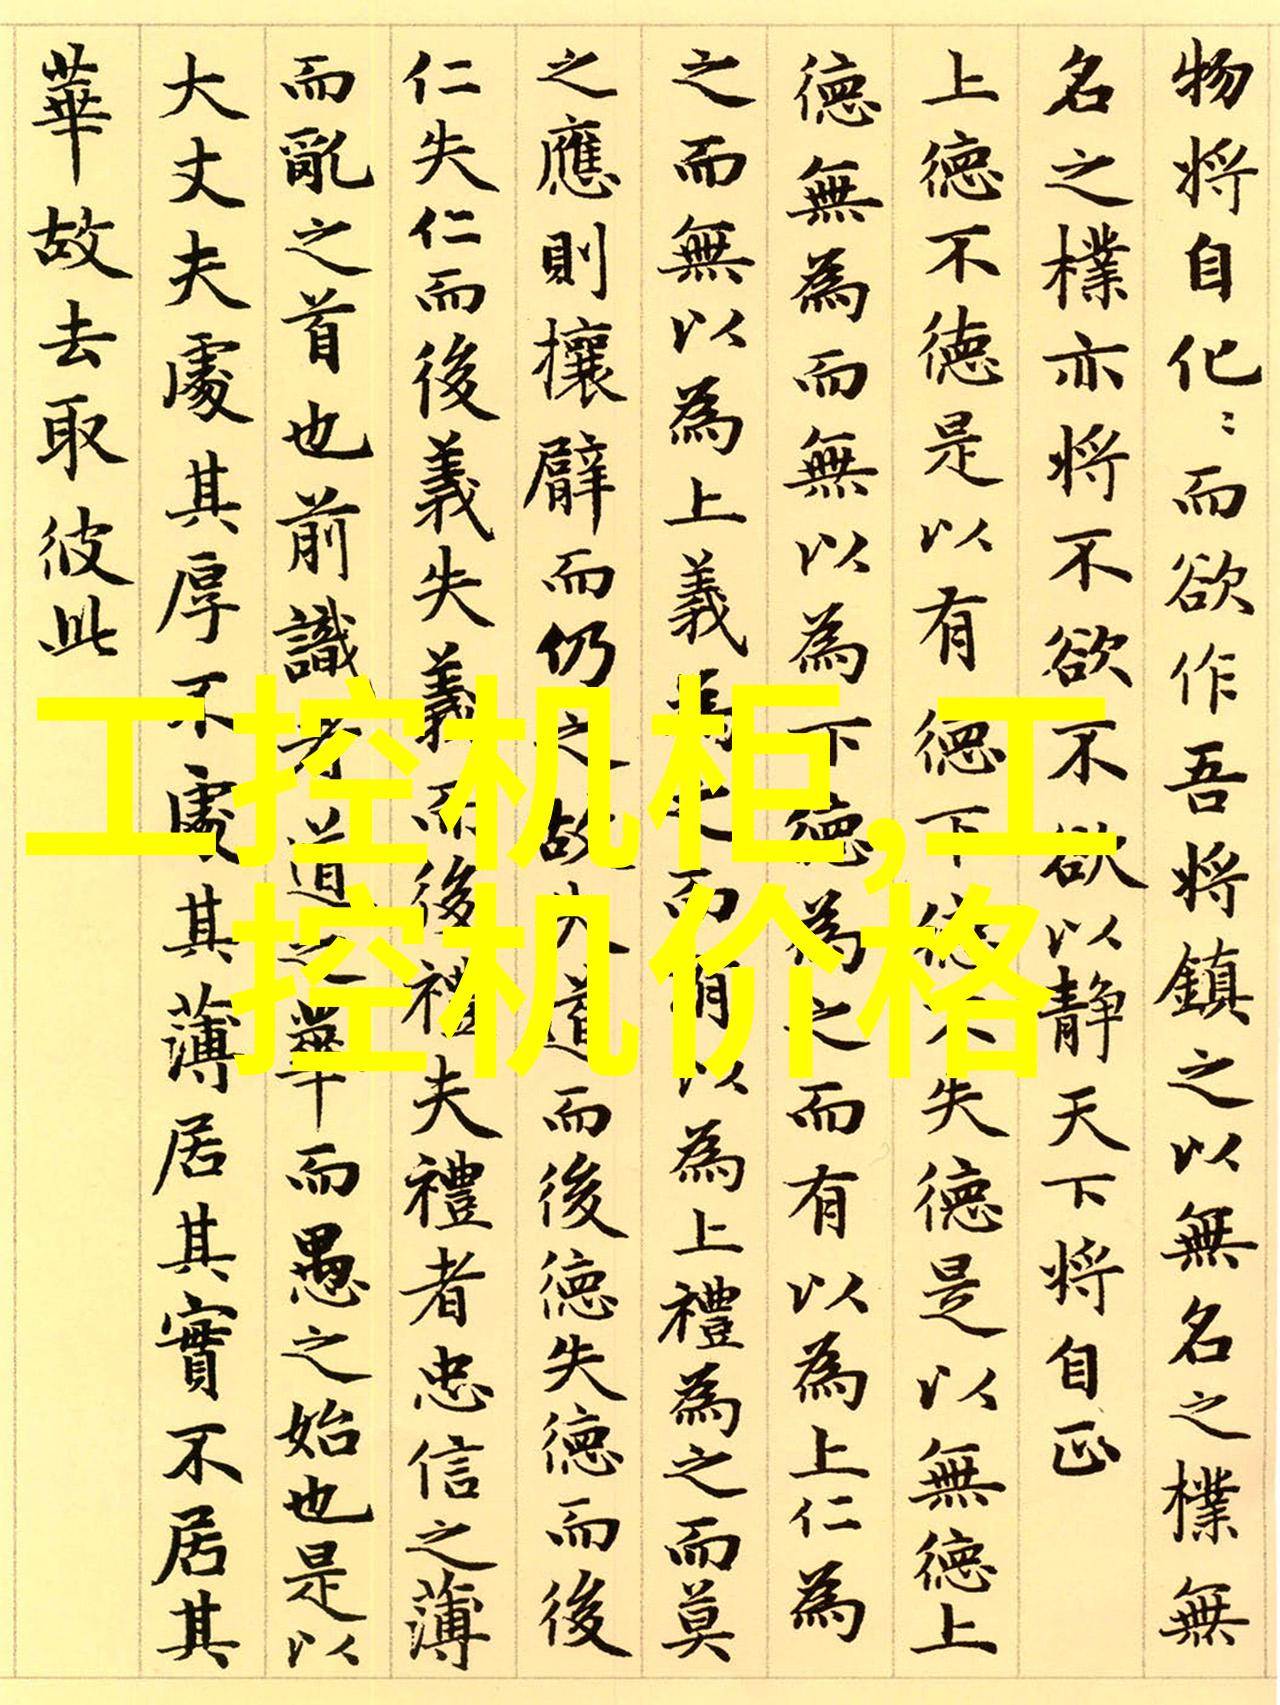 物将自化〻而欲作吾将鎮之以無名之樸無
名之樸亦将不欲不欲以静天下将自正
上德不德是以有德下德不失德是以無德上
德無為而無以為下德為之而有以為上仁為
之而無以為上義為之而有以為上禮為之而莫
之應則攘臂而仍之故失道而後德失德而後
仁失仁而後義失義而後禮夫禮者忠信之薄
而亂之首也前識者道之華而愚之始也是以
大丈夫處其厚不處其薄居其實不居其
華故去取彼此
工控机柜,工
控机价格